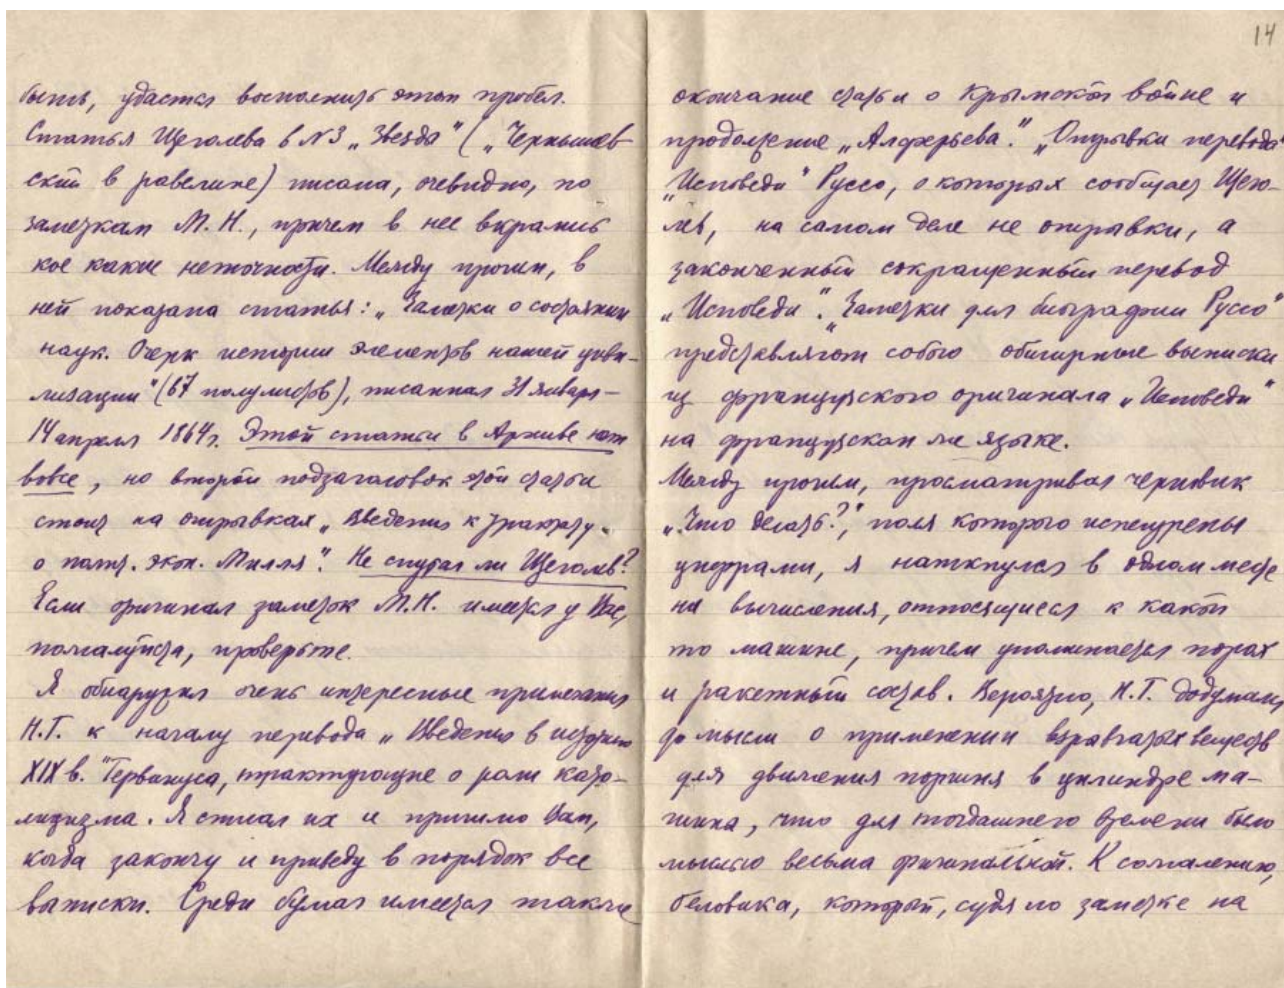 быть, удастся восполнить этот пробел.
Статья Щеголева в N3 „Звезда" („Чернышев-
ский в равелине) писана, очевидно, по
заметкам М.Н., причем в нее вкрались
кое какие неточности. Между прочим, в
ней показана статья: „Заметки о состоянии
наук. Очерк истории элементов нашей циви-
лизации" (67 полулистов), писанная 31 января –
14 апреля 1864 г. Этой статьи в Архиве нет
вовсе, но второй подзаголовок этой статьи
стоит на отрывках „Введения к трактату
о полит. экон. Милля". Не спутал ли Щеголев?
Если оригинал заметок М.Н. имеется у Вас,
пожалуйста, проверьте.
Я обнаружил очень интересные примечания
Н.Г. к началу перевода „Введения в историю
XIX в." Гервинуса, трактующие о роли като-
лицизма. Я списал их и пришлю Вам,
когда закончу и приведу в порядок все
выписки. Среди бумаг имеется также
14
окончание статьи о Крымской войне и
продолжение „Алферьева". „Отрывки перевода
„Исповеди" Руссо, о которых сообщает Щего-
лев, на самом деле не отрывки, а
законченный сокращенный перевод
„Исповеди". „Заметки для биографии Руссо"
представляют собою обширные выписки
из французского оригинала „Исповеди"
на французском же языке.
Между прочим, просматривая черновик
„Что делать?", поля которого испещрены
цифрами, я наткнулся в одном месте
на вычисления, относящиеся к какой
то машине, причем упоминается порох
и ракетный состав. Вероятно, Н.Г. додумался
до мысли о применении взрывчатых веществ
для движения поршня в цилиндре ма-
шины, что для тогдашнего времени было
мыслью весьма оригинальной. К сожалению,
беловика, который, судя по заметке на